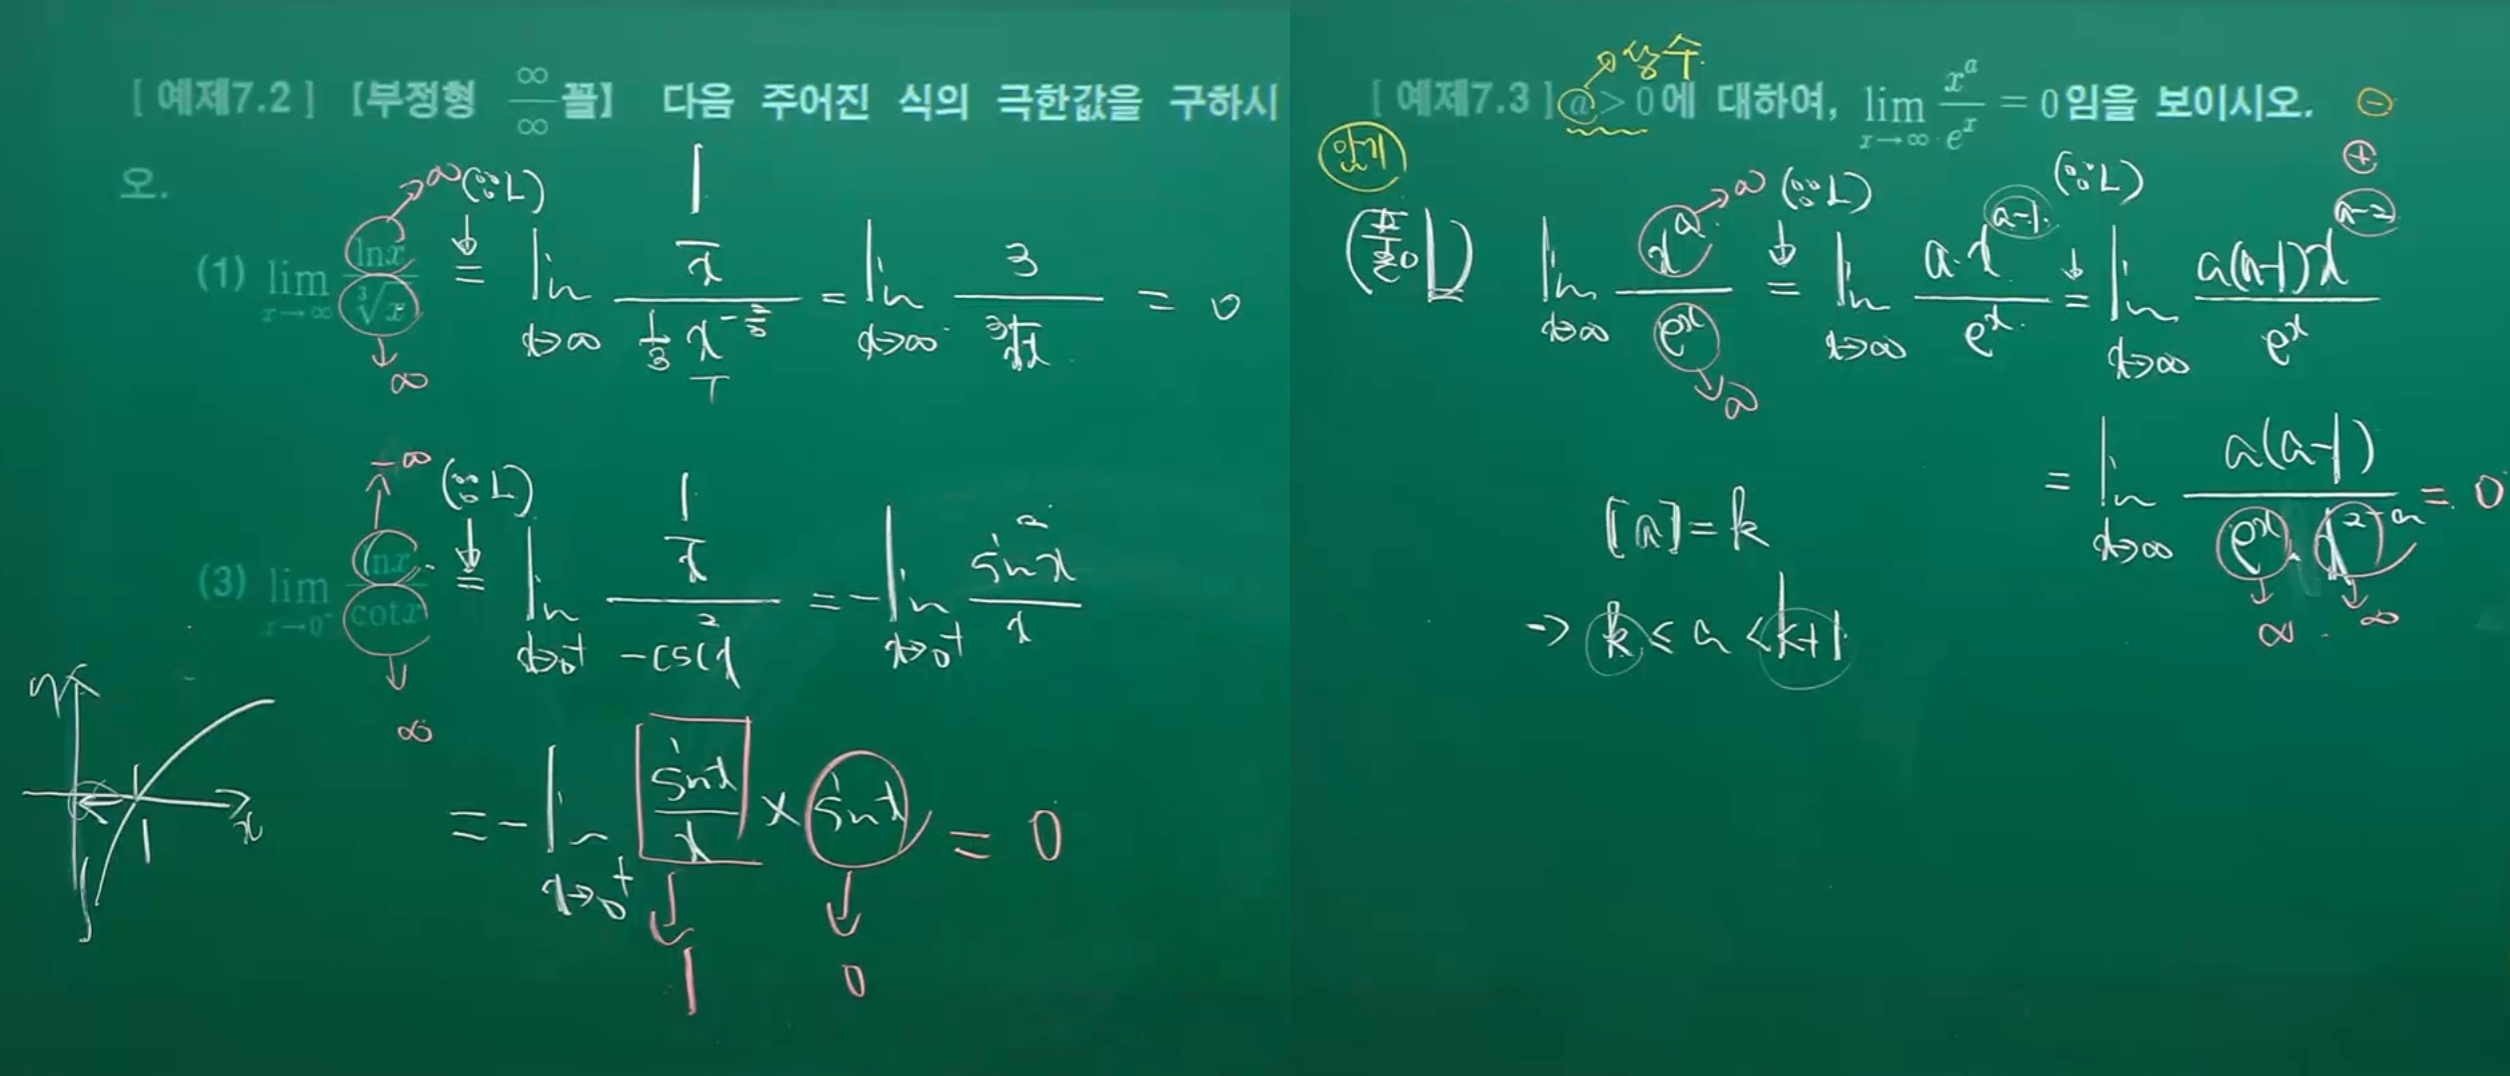 [ 예제7.2 ] [부정형 ∞/∞ 꼴] 다음 주어진 식의 극한값을 구하시
오.
(1) lim x→∞ lnx/∛x = lim x→∞ (1/x)/(1/3 x^(-2/3)) = lim x→∞ 3/∛x = 0
∞ (∵ L)
∞
-∞ (∵ L)
(3) lim x→0⁺ lnx/cotx = lim x→0⁺ (1/x)/(-csc²x) = - lim x→0⁺ sin²x/x
∞
= - lim x→0⁺ sinx/x × sinx = 0
1 0
y
x
1
[ 예제7.3 ] a > 0에 대하여, lim x→∞ x^a/e^x = 0임을 보이시오.
상수
암기
⊖
⊕
lim x→∞ x^a/e^x = lim x→∞ a·x^(a-1)/e^x = lim x→∞ a(a-1)x^(a-2)/e^x
∞ (∵ L) (∵ L)
∞
= lim x→∞ a(a-1)/(e^x · x^(2-a)) = 0
∞ · ∞
[a] = k
→ k ≤ a < k+1